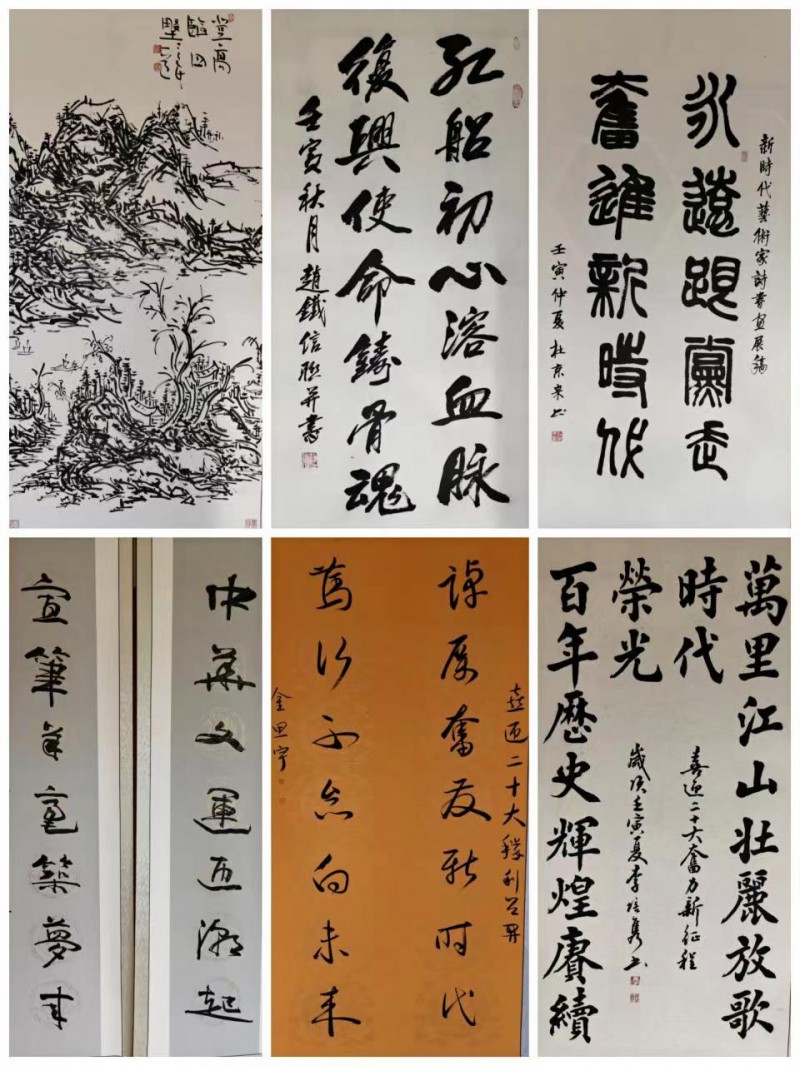 登高
臨四
野
紅船初心溶血脉
復興使命鑄骨魂
壬寅秋月趙鐵信聯并書
新時代藝術家詩書畫展稿
永遠跟黨走
奮進新時代
壬寅仲夏杜京来书
中華文運迎潮起
宣筆羊毫築夢来
喜迎二十大勝利召開
踔厉奮发新时代
篤行不怠向未来
金思宇
萬里江山壯麗放歌
時代
喜迎二十大奮力新征程
歲次壬寅夏李培隽书
百年歷史輝煌賡續
榮光